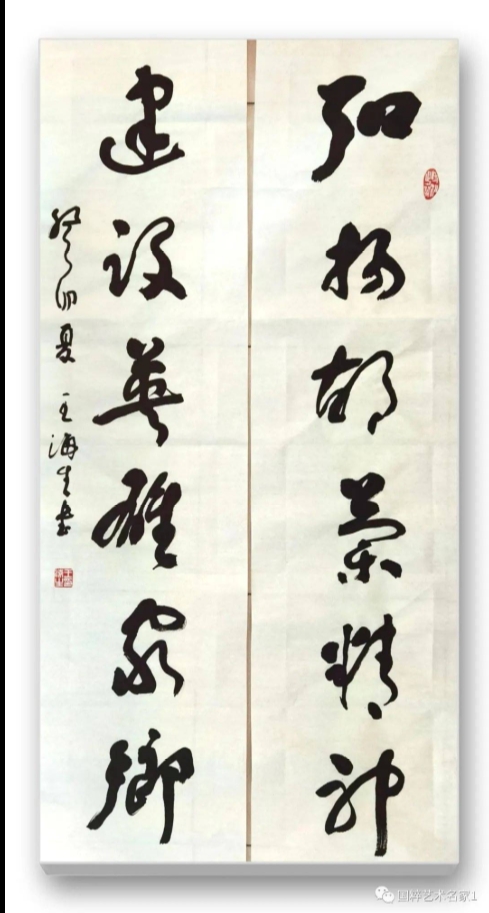 弘扬胡兰精神
建设英雄家乡
癸卯夏 王海生书
国粹艺术名家1